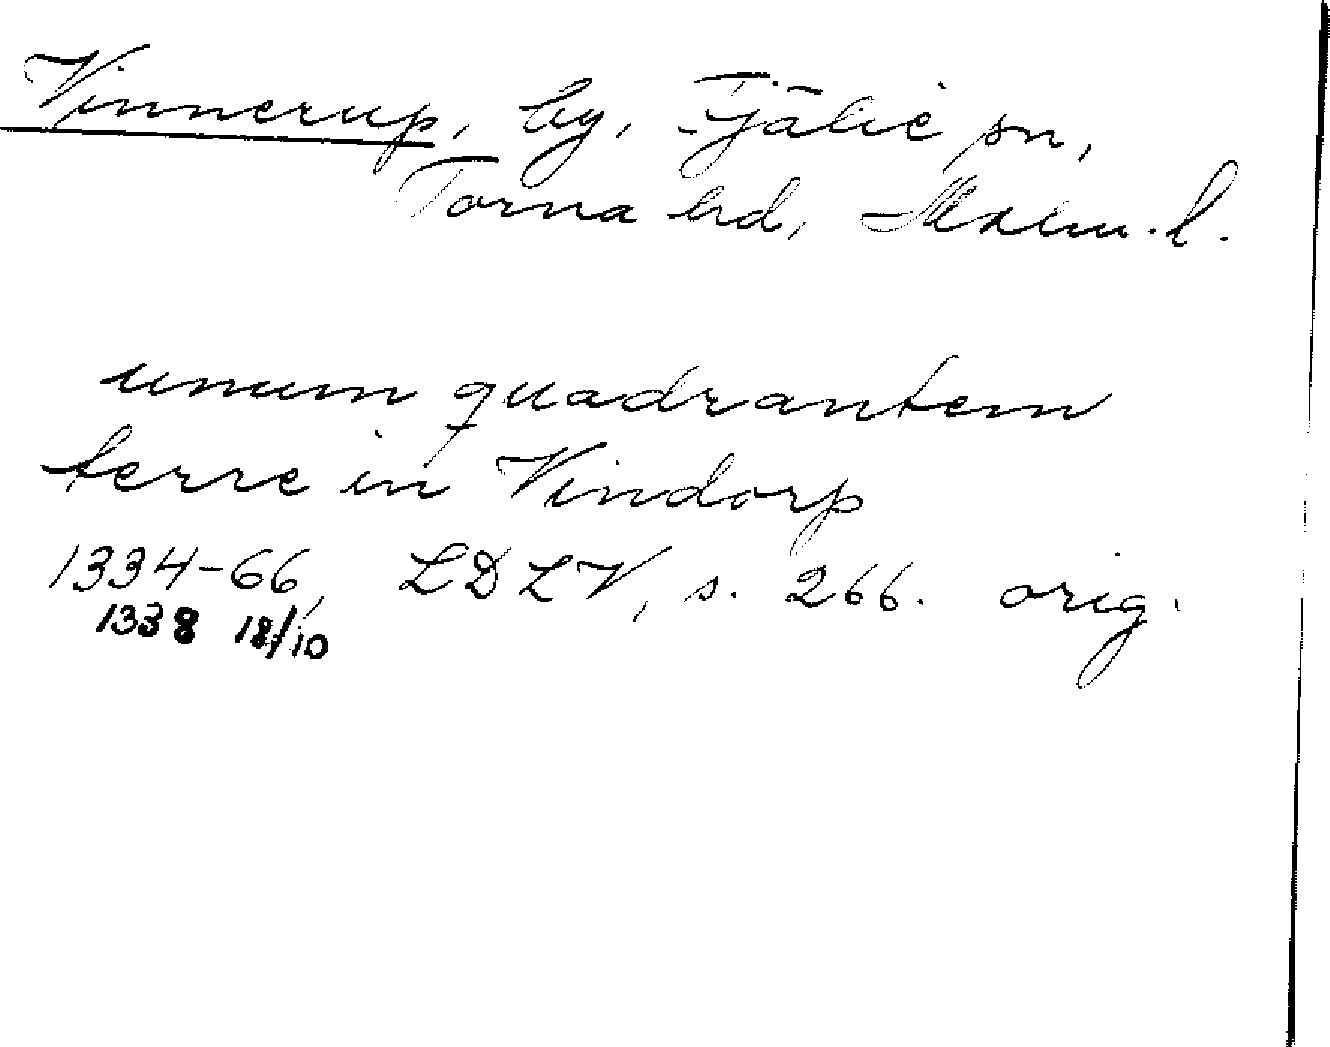 Vinnerup, by, Fjälie sn,
Torna hd, Malm. l.
unum quadrantem
terre in Vindorp
1334-66, LDLV, s. 266. orig.
1338 18/10